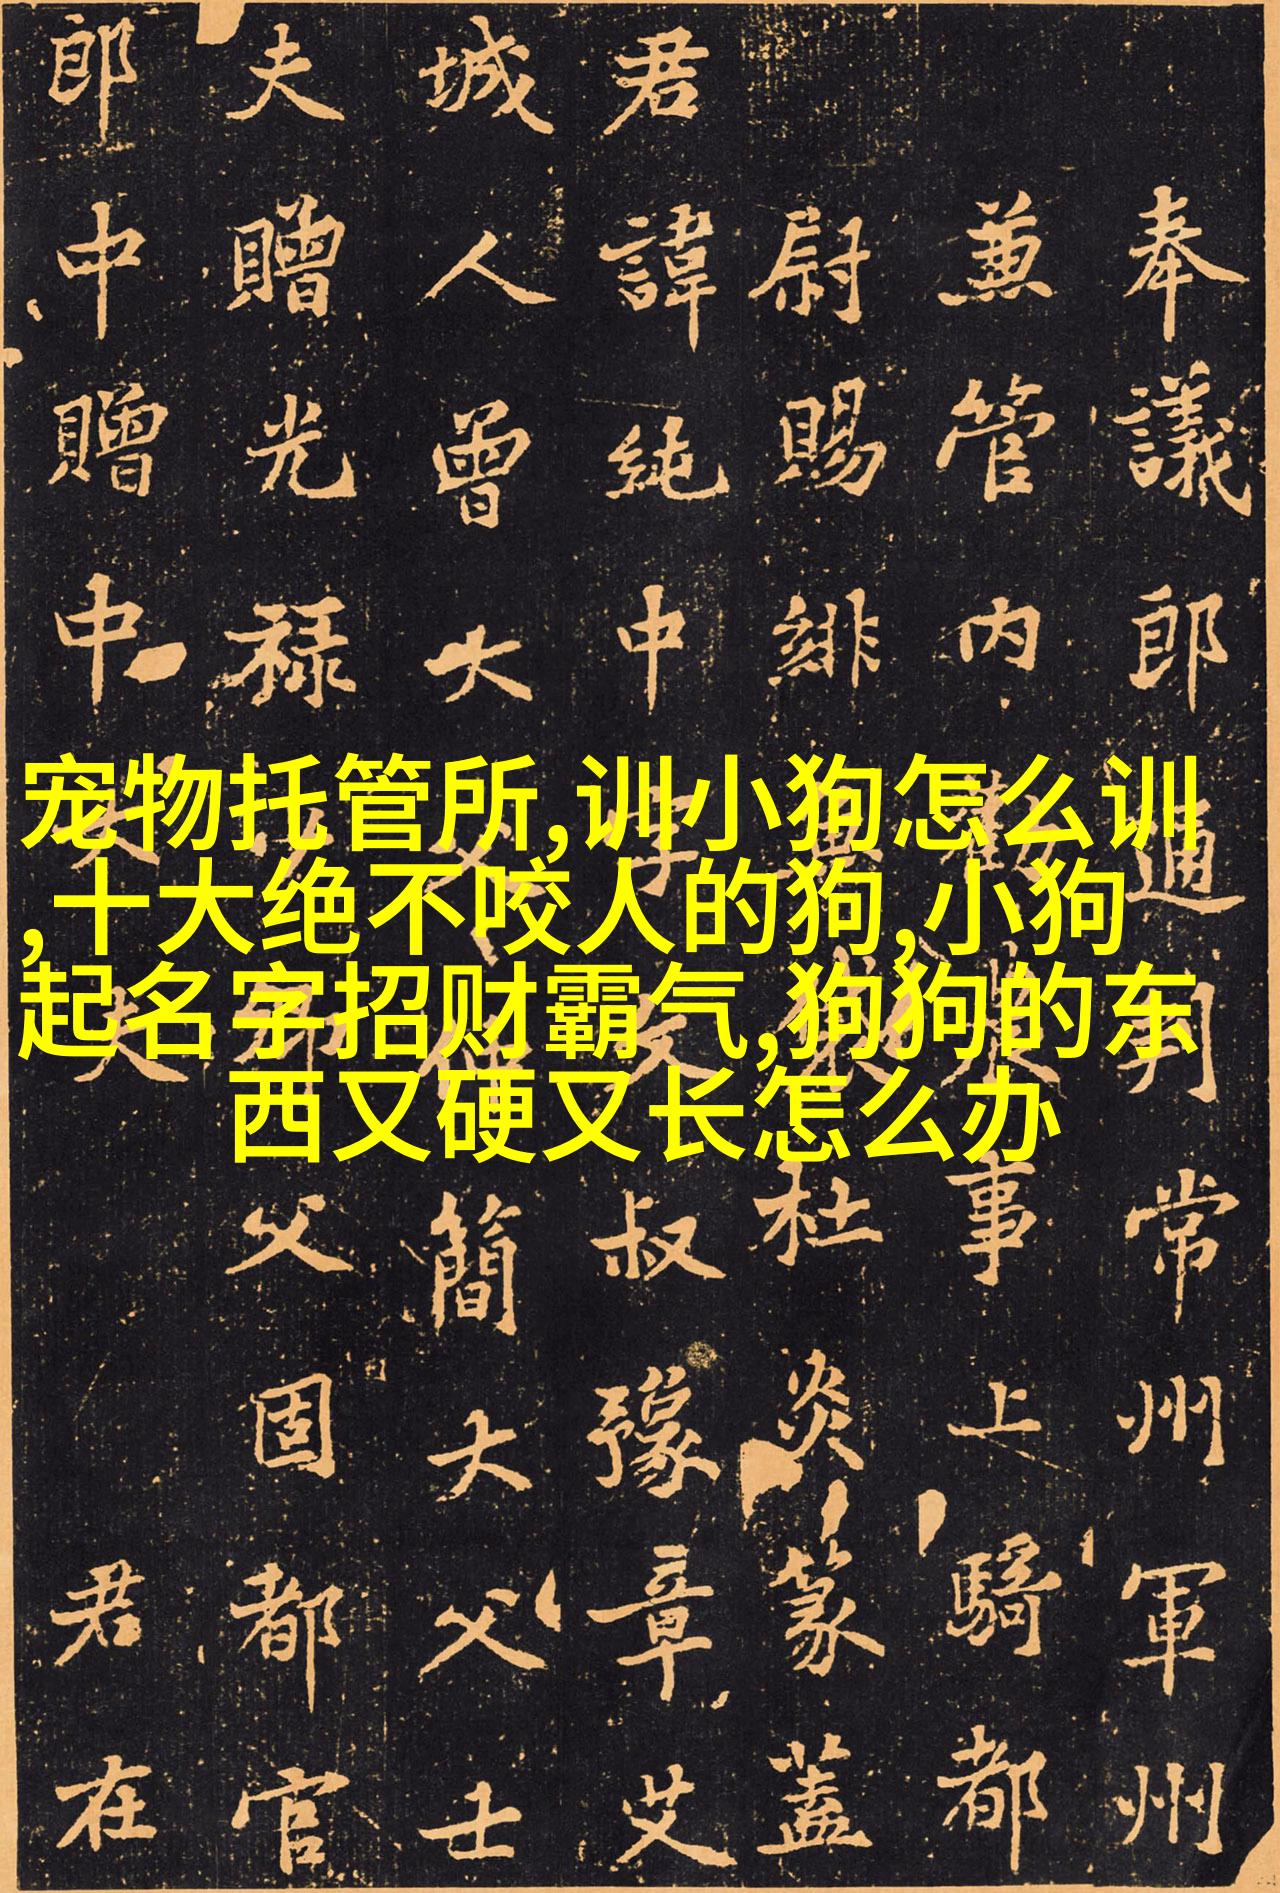 宠物托管所,训小狗怎么训
,十大绝不咬人的狗,小狗
起名字招财霸气,狗狗的东
西又硬又长怎么办
奉議郎通判常州軍州
兼管内勸農事上騎都
尉賜緋魚袋杜炎篆蓋
君諱純中字文叔豫章艾
城人曾大父簡大父士
夫贈光禄父固都官
郎中贈中大夫君在